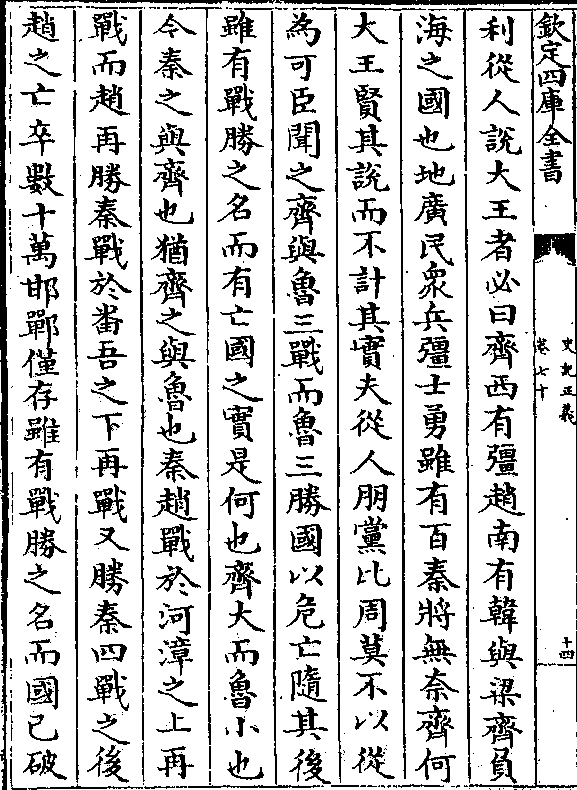 欽定四庫全書
史記正義
卷七十
十四
利從人說大王者必曰齊西有彊趙南有韓與梁齊負
海之國也地廣民衆兵彊士勇雖有百秦將無奈齊何
大王賢其說而不計其實夫從人朋黨比周莫不以從
為可臣聞之齊與魯三戰而魯三勝國以危亡隨其後
雖有戰勝之名而有亡國之實是何也齊大而魯小也
今秦之與齊也猶齊之與魯也秦趙戰於河漳之上再
戰而趙再勝秦戰於番吾之下再戰又勝秦四戰之後
趙之亡卒數十萬邯鄲僅存雖有戰勝之名而國已破